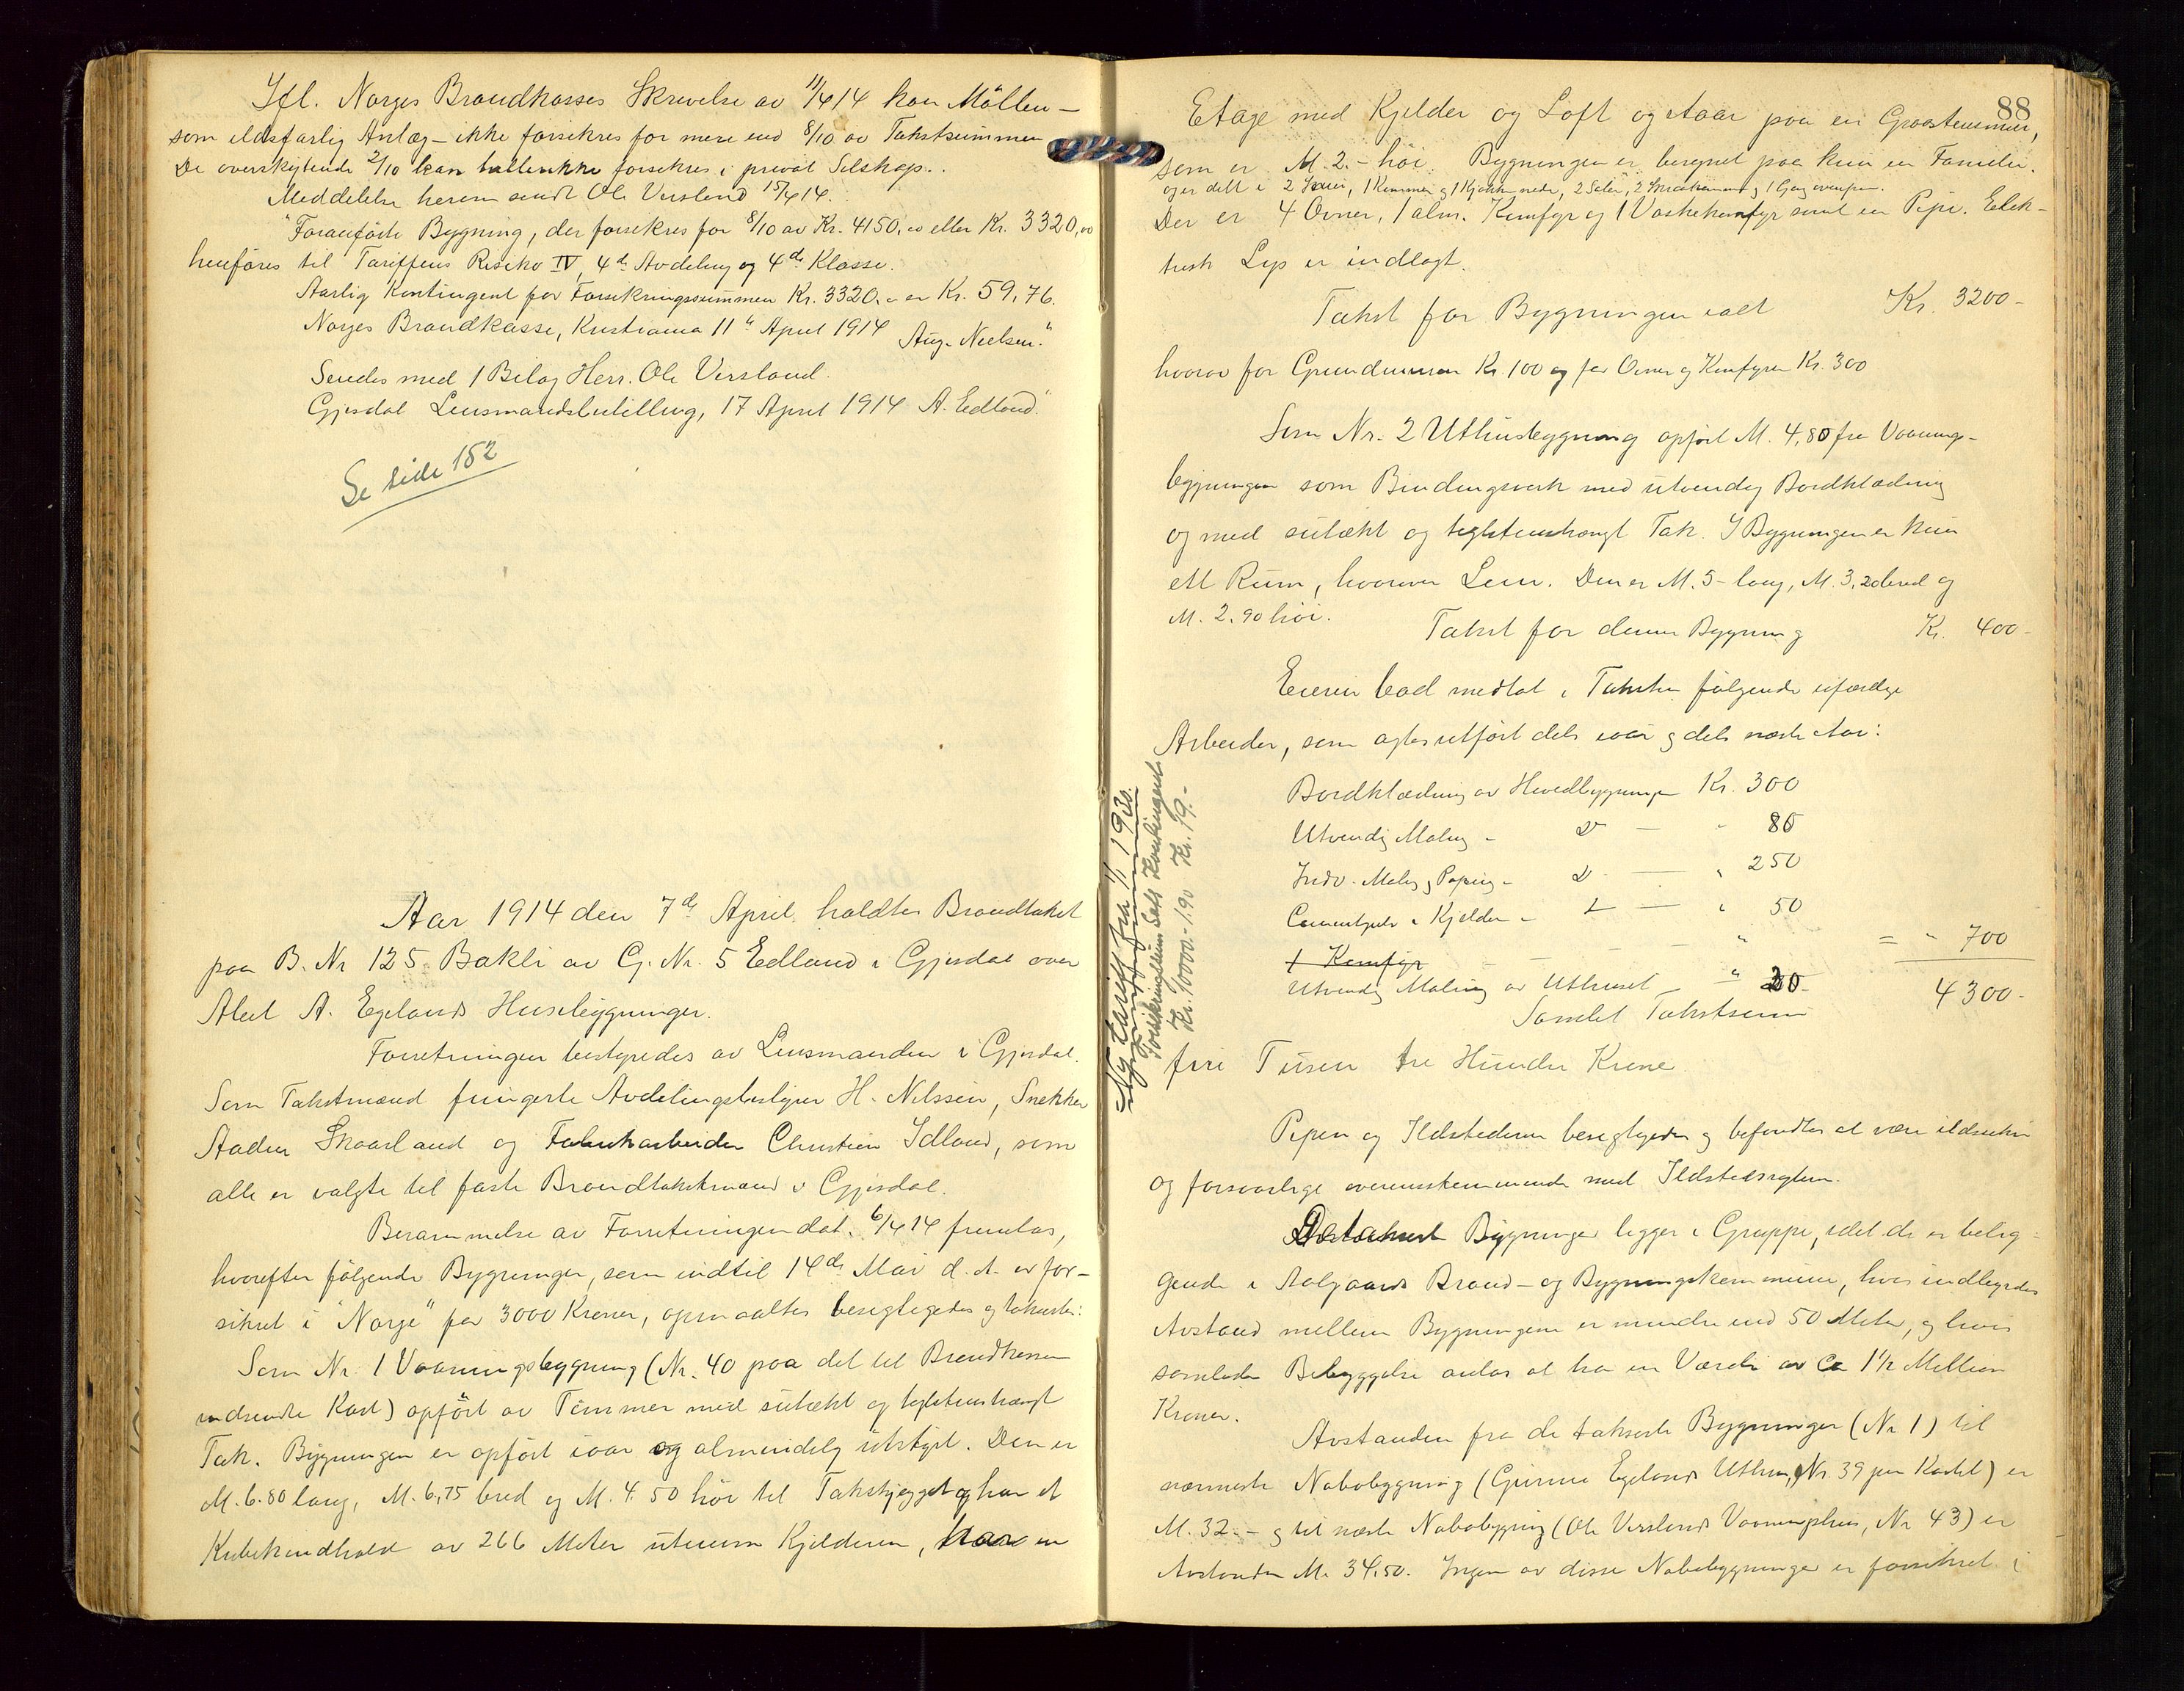 Ifl. Norges Brandkasses Skrivelse av 11/4 14 kan Möllen –
som ildsfarlig Anlæg – ikke forsikres for mere end 8/10 av Takstsummen
De overskytende 2/10 kan heller ikke forsikres i privat Selskap.
Meddelelse herom sendt Ole Versland 15/4 14.
"Foranförte Bygning, der forsikres for 8/10 av Kr. 4150,00 eller Kr. 3320,00
henföres til Tariffens Risiko IV, 4de Avdeling og 4de Klasse.
Aarlig Kontingent for Forsikringssummen Kr. 3320.- er Kr. 59,76.
Norges Brandkasse, Kristiania 11te April 1914 Aug. Nielsen."
Sendes med 1 Bilag Herr. Ole Versland.
Gjesdal Lensmandsbestilling, 17 April 1914 A. Edland."
Se side 152
Aar 1914 den 7de April holdtes Brandtakst
paa B. Nr 125 Bakli av G. Nr. 5 Edland i Gjesdal over
Abel A. Egelands Husebygninger.
Forretningen bestyredes av Lensmanden i Gjesdal.
Som Takstmænd fungerte Avdelingsbestyrer H. Nilssen, Snekker
Aadne Skaarland og Fabrikarbeider Christian Idland, som
alle er valgte til faste Brandtakstmænd i Gjesdal.
Berammelse av Forretningen dat. 6/4 14 fremlas,
hvorefter fölgende Bygninger, som indtil 14de Mai d. A. er for-
sikret i "Norge" for 3000 Kroner, opmaaltes besigtigedes og takseres:
Som Nr. 1 Vaaningsbygning (Nr. 40 paa det til Brandkassen
indsendte Kart) opfört av Tömmer med sutækt og teglstenshængt
Tak. Bygningen er opfört iaar og almindelig utstyrt. Den er
M. 6.80 lang, M. 6,75 bred og M. 4.50 höi til Takskjegget og har et
Kubikindhold av 266 Meter utenom Kjelderen, har en
88
Etage med Kjelder og Loft og staar paa en Graastensmur,
som er M. 2.- höi. Bygningen er beregnet paa kun en Familie.
og er delt i 2 Stuer, 1 Kammer og 1 Kjökken nede, 2 Saler, 2 Smaakammer og 1 Gang ovenpaa.
Der er 4 Ovner, 1 alm. Komfyr og 1 Vaskekomfyr samt en Pipe. Elek-
trisk Lys er indlagt.
Takst for Bygningen ialt Kr. 3200-
hvorav for Grundmuren Kr. 100 og for Ovner og Komfyrer Kr. 300
Som Nr. 2 Uthusbygning opfört M. 4,80 fra Vaanings-
bygningen som Bindingsverk med utvendig Bordklædning
og med sutækt og teglstenshængt Tak. I Bygningen er kun
ett Rum, hvorover Lem. Den er M. 5- lang, M. 3,20 bred og
M. 2.90 höi.
Takst for denne Bygning Kr. 400-
Eieren bad medtat i Taksten fölgende ufærdige
Arbeider, som agtes utfört dels iaar og dels næste Aar:
Bordklædning av Hovedbygningen Kr. 300
Utvendig Maling - do — " 80
Indv. Maling og Paping - do — " 250
Cementpuds i Kjelder - — " 50
1 Komfyr — " = " 700
Utvendig Maling av Uthuset — " 20-
Samlet Takstsum 4300-
fire Tusen tre Hundre Krone.
Pipen og Ildstederne besigtigedes og befandtes at være ildsikre
og forsvarlige overensstemmende med Ildstedsreglerne.
De takserte Bygninger ligger i Gruppe, idet de er belig-
gende i Aalgaards Brand- og Bygningskommune, hvis indbyrdes
Avstand mellem Bygningene er mindre end 50 Meter, og hvis
samlede Bebyggelse antas at ha en Værdi av Ca 1½ Million
Kroner.
Avstanden fra de takserte Bygninger (Nr 1) til
nærmeste Nabobygning (Gunnar Egelands Uthus, Nr. 39 paa Kartet) er
M. 32.- og til næste Nabobygning (Ole Verslands Vaaningshus, Nr 43) er
Avstanden M. 34,50. Ingen av disse Nabobygninger er forsikret i
Ny tariff fra 1/1 1920.
Forsikringssum Sats Kontingent
Kr. 10000.- 1.90 Kr. 19.-